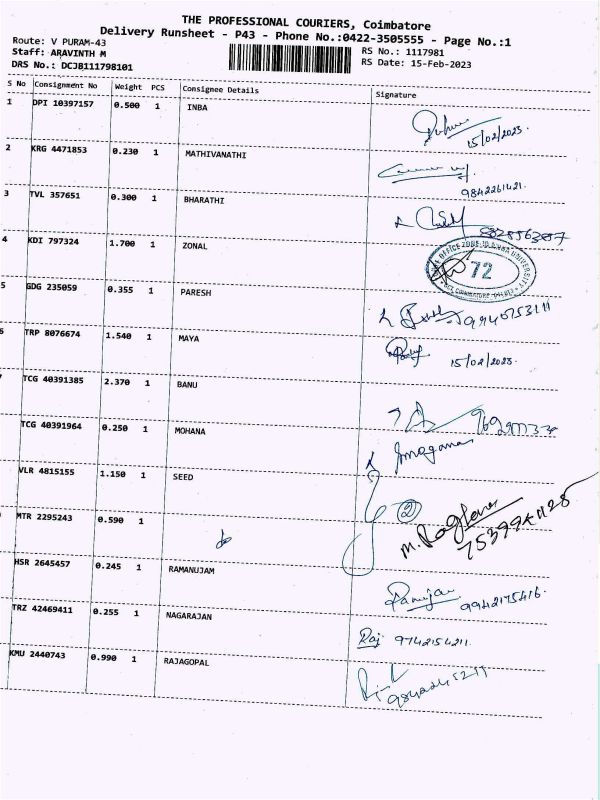 THE PROFESSIONAL COURIERS, Coimbatore
Delivery Runsheet - P43 - Phone No.:0422-3505555 - Page No.:1
Route: V PURAM-43
Staff: ARAVINTH M
DRS No.: DCJB111798101
RS No.: 1117981
RS Date: 15-Feb-2023
S No Consignment No Weight PCS Consignee Details Signature
1 DPI 10397157 0.500 1 INBA
15/02/2023
2 KRG 4471853 0.230 1 MATHIVANATHI
9842261421.
3 TVL 357651 0.300 1 BHARATHI
4 KDI 797324 1.700 1 ZONAL
72
5 GDG 235059 0.355 1 PARESH
6 TRP 8076674 1.540 1 MAYA
15/02/2023.
TCG 40391385 2.370 1 BANU
TCG 40391964 0.250 1 MOHANA
VLR 4815155 1.150 1 SEED
2
MTR 2295243 0.590 1
M. Raghava
HSR 2645457 0.245 1 RAMANUJAM
Ramujam 9942175416.
TRZ 42469411 0.255 1 NAGARAJAN
Raj 9742154211.
KMU 2440743 0.990 1 RAJAGOPAL